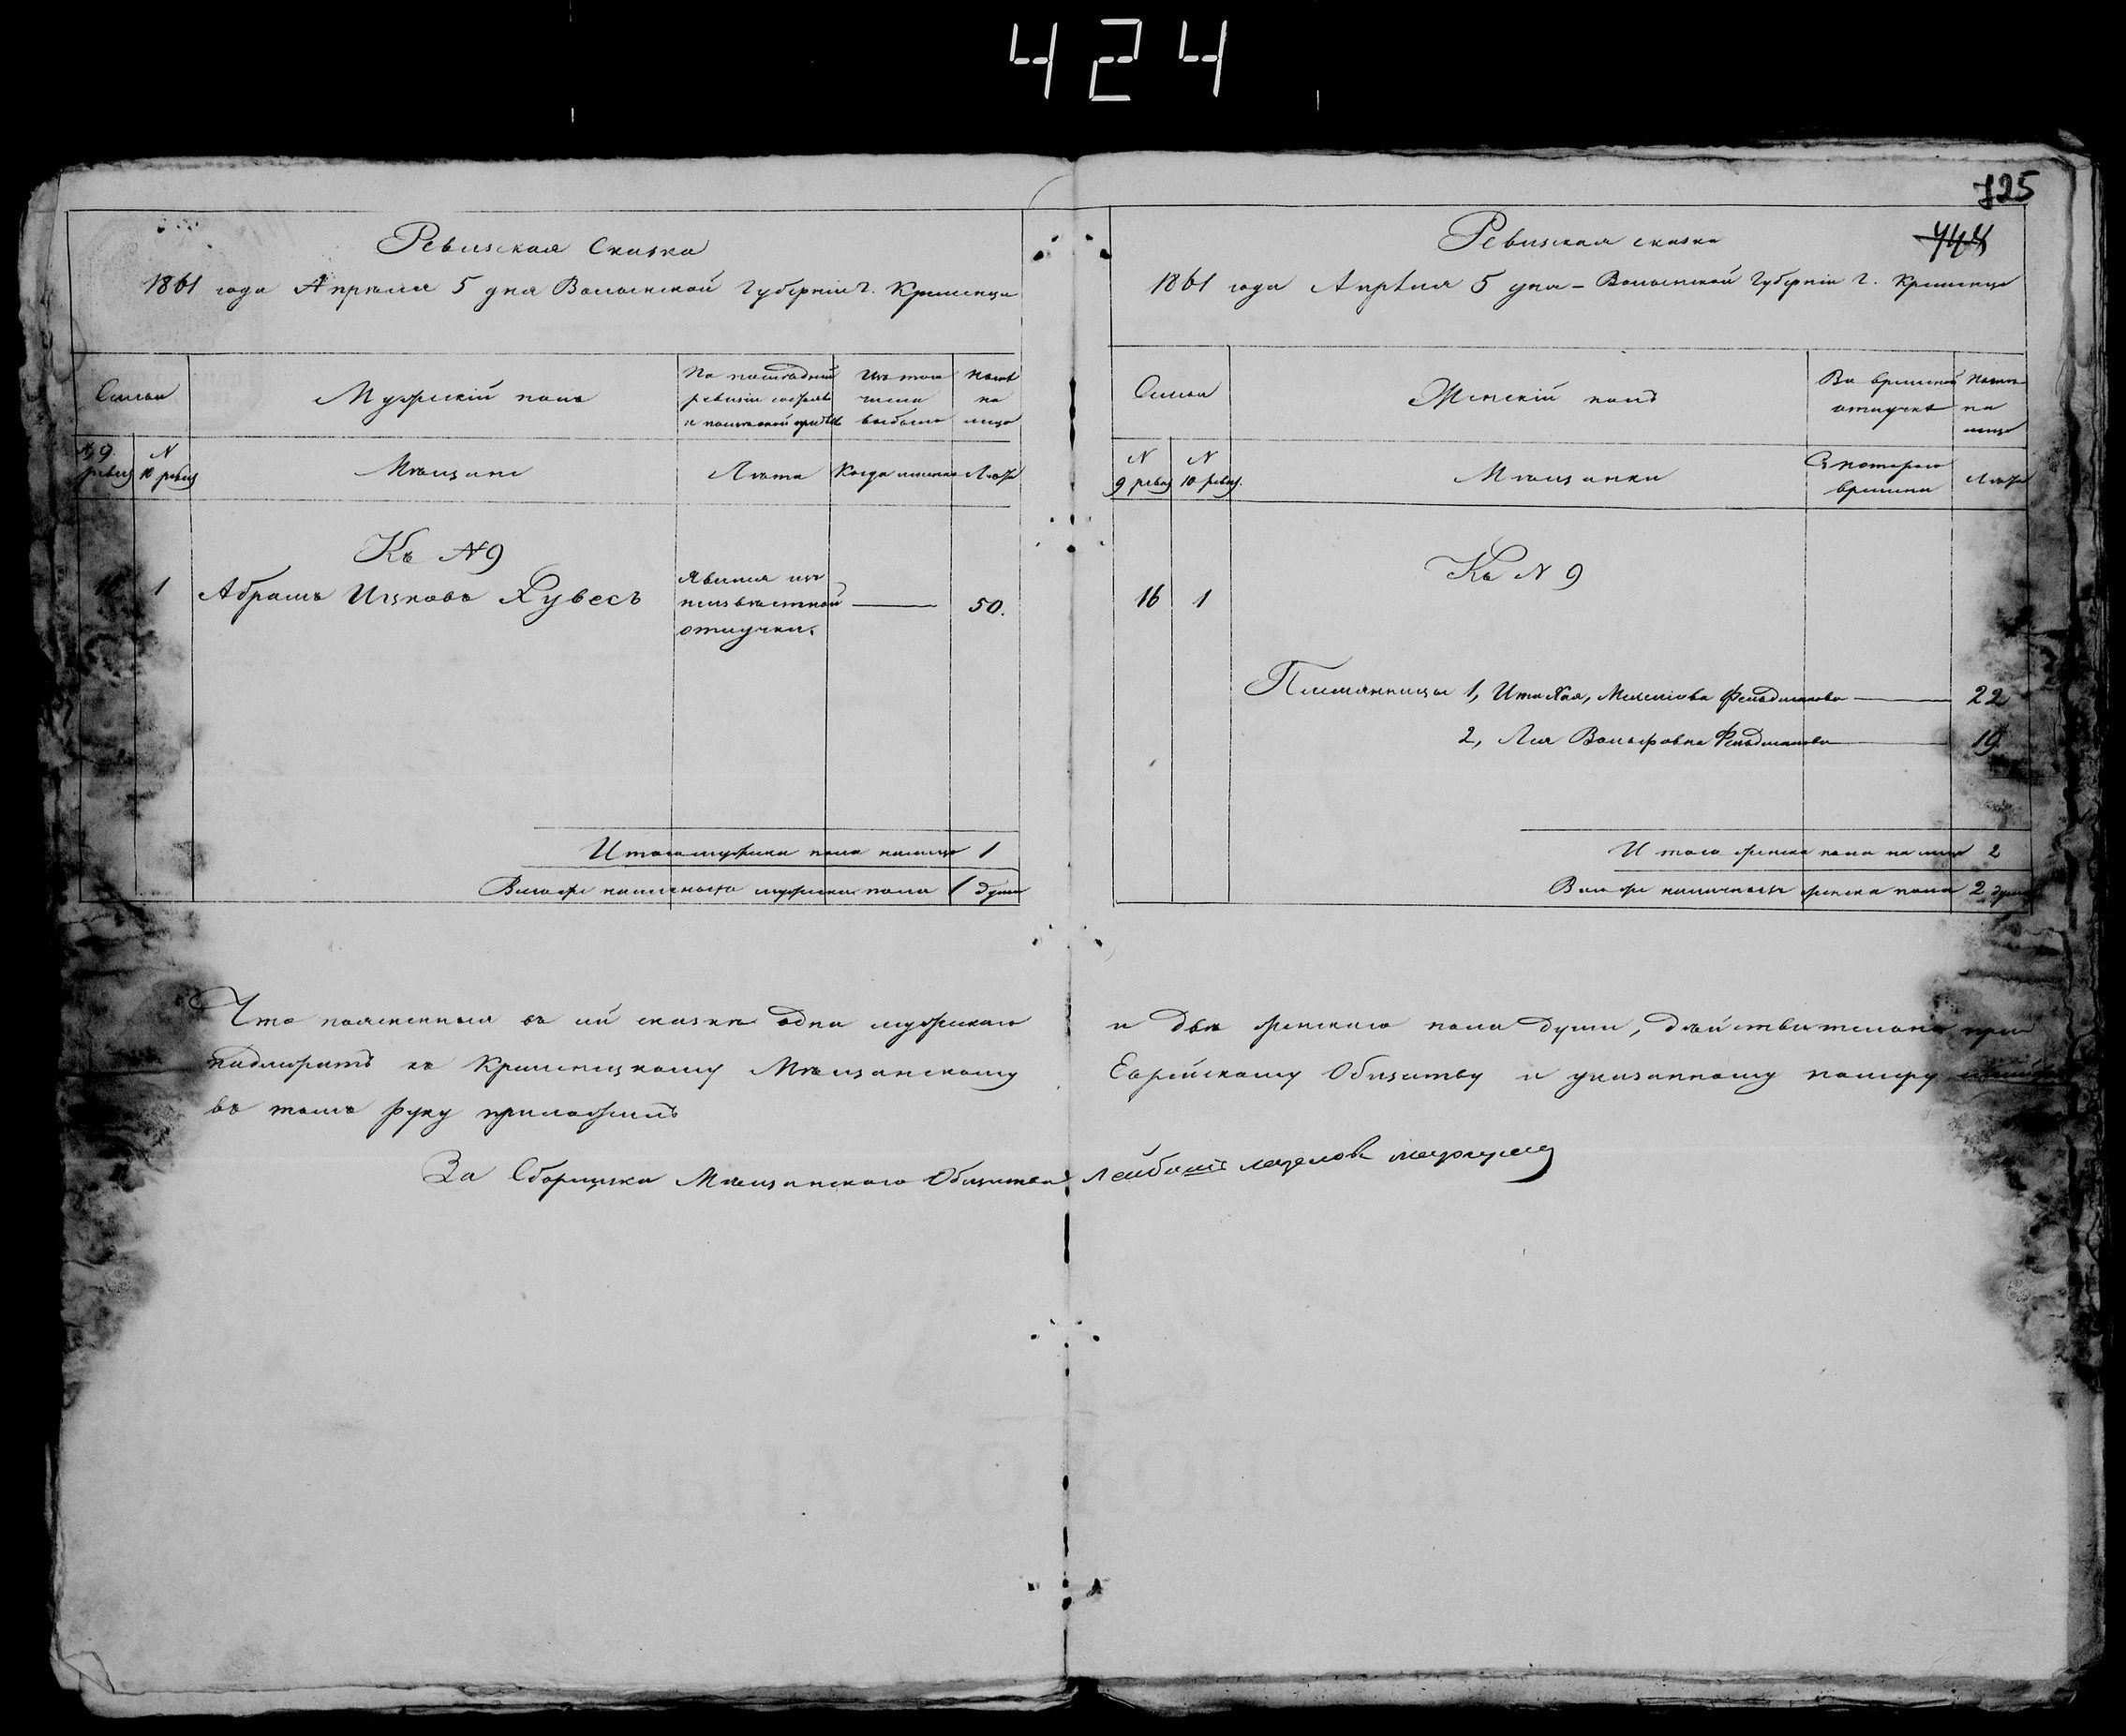 424
725
744
Ревизская Сказка
1861 года Апрѣля 5 дня Волынской Губерніи г. Кременца
Семьи
Мужескій полъ
По послѣдней ревизіи состояло и послѣ оной прибыло
Изъ того числа выбыло
Нынѣ на лицо
№ 9 ревиз
№ 10 ревиз
Мѣщане
Лѣта
Когда именно
Лѣта
Къ №9
16 1 Абрамъ Ицковъ Хувесъ
Явился изъ неизвѣстной отлучки.
50.
Итого мужеска пола на лицо 1
Всего же наличнаго мужеска пола 1 душа
Ревизская сказка
1861 года Апрѣля 5 дня - Волынской Губерніи г. Кременца
Семьи
Женскій полъ
Во временной отлучкѣ
Нынѣ на лицо
№ 9 ревиз
№ 10 ревиз.
Мѣщанки
Съ котораго времени
Лѣта
Къ № 9
16 1
Племянницы 1, Ита Хая, Фельдманова 22
2, Лея Вольфовна Фельдманова 19
Итого женска пола на лицо 2
Всего же наличнаго женска пола 2 души
Что поясненныя въ сей сказкѣ одна мужескаго и двѣ женскаго пола души, дѣйствительно при
надлежатъ къ Кременецкому Мѣщанскому Еврейскому Обществу и указанному номеру
въ томъ руку приложилъ
За Сборщика Мѣщанскаго Общества Лейбишъ